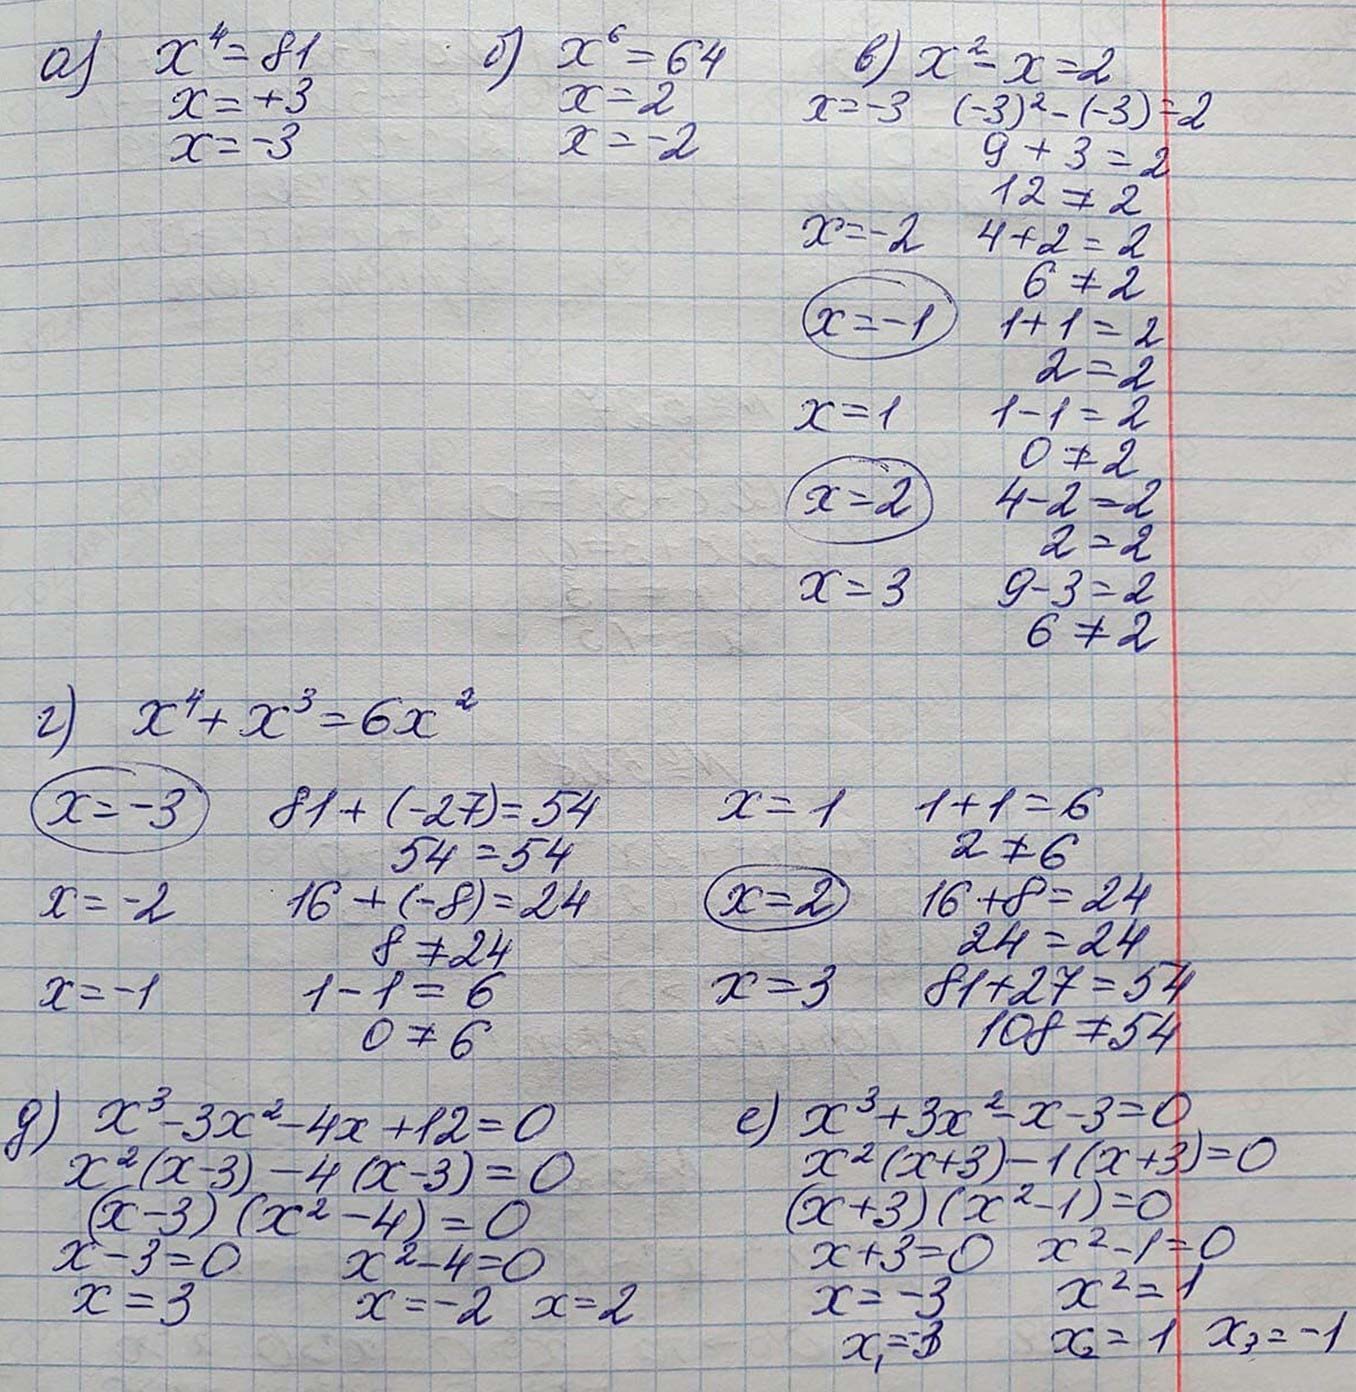 а) x⁴ = 81
x = +3
x = -3
б) x⁶ = 64
x = 2
x = -2
в) x² - x = 2
x = -3 (-3)² - (-3) = 2
9 + 3 = 2
12 ≠ 2
x = -2 4 + 2 = 2
6 ≠ 2
x = -1 1 + 1 = 2
2 = 2
x = 1 1 - 1 = 2
0 ≠ 2
x = 2 4 - 2 = 2
2 = 2
x = 3 9 - 3 = 2
6 ≠ 2
г) x⁴ + x³ = 6x²
x = -3 81 + (-27) = 54
54 = 54
x = -2 16 + (-8) = 24
8 ≠ 24
x = -1 1 - 1 = 6
0 ≠ 6
x = 1 1 + 1 = 6
2 ≠ 6
x = 2 16 + 8 = 24
24 = 24
x = 3 81 + 27 = 54
108 ≠ 54
д) x³ - 3x² - 4x + 12 = 0
x² (x - 3) - 4 (x - 3) = 0
(x - 3) (x² - 4) = 0
x - 3 = 0 x² - 4 = 0
x = 3 x = -2 x = 2
е) x³ + 3x² - x - 3 = 0
x² (x + 3) - 1 (x + 3) = 0
(x + 3) (x² - 1) = 0
x + 3 = 0 x² - 1 = 0
x = -3 x² = 1
x₁ = -3 x₂ = 1 x₃ = -1